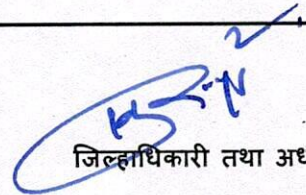 जिल्हाधिकारी तथा अध